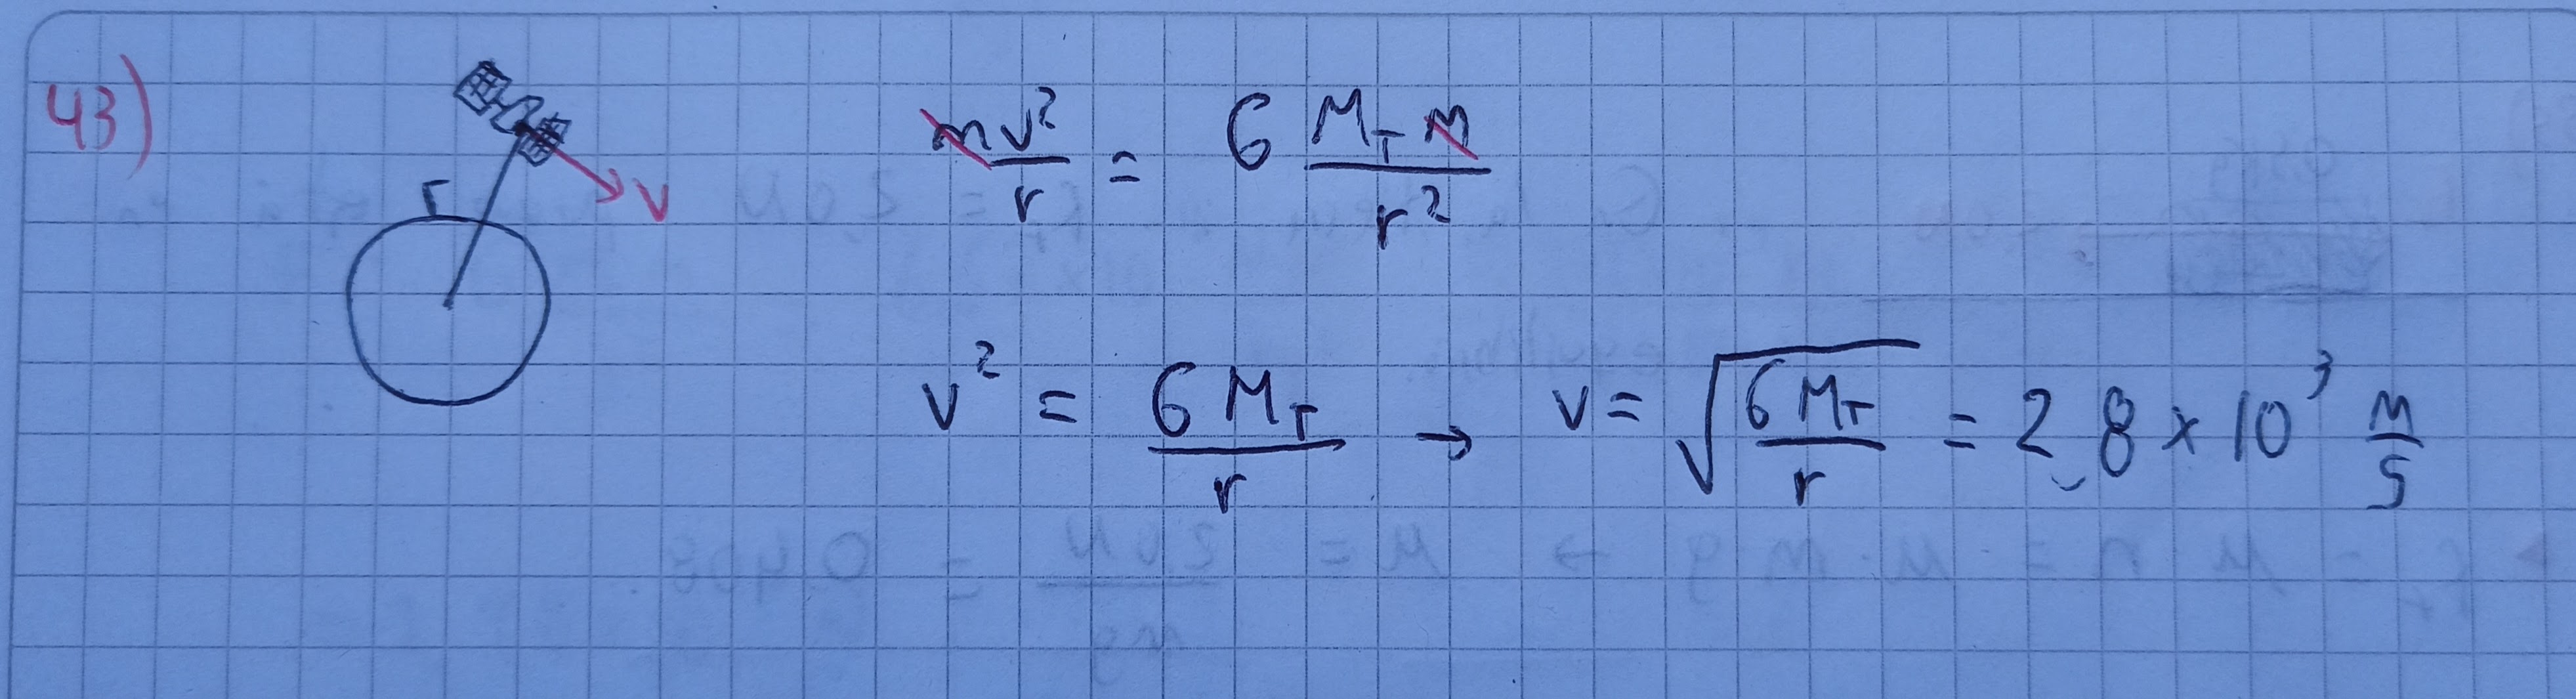 43)
r
v
mv²/r = G M_T m/r²
v² = G M_T/r → v = √(G M_T/r) = 2,8 × 10³ m/s